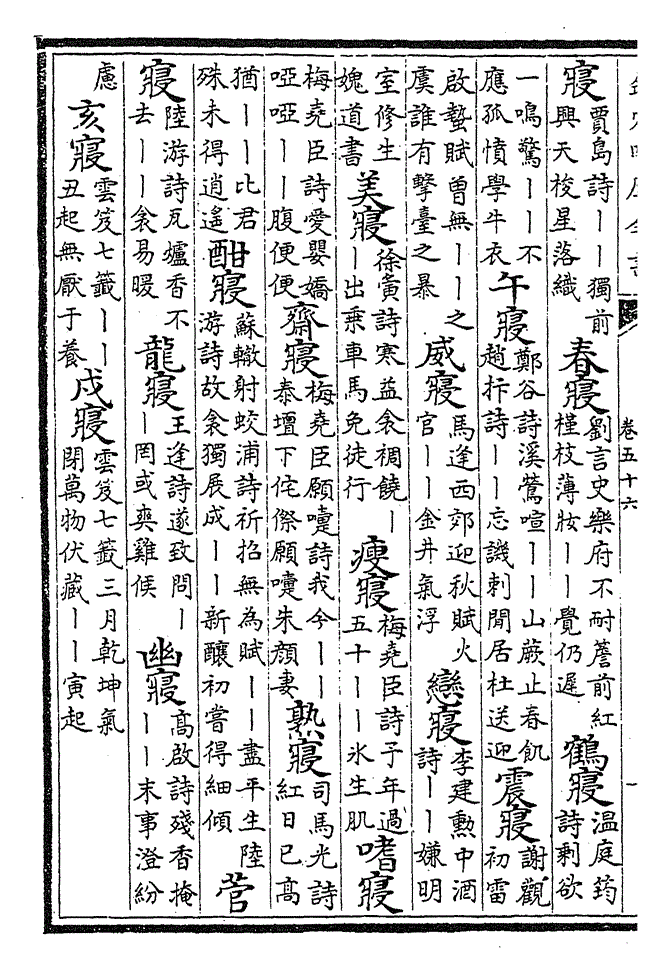 卷五十六
寢賈島詩丨丨獨前興天梭星落織春寢劉言史樂府不耐簷前紅槿枝薄妝丨丨覺仍遲鶴寢溫庭筠詩剩欲
一鳴驚丨丨不應孤憤學牛衣午寢鄭谷詩溪鶯喧丨丨山蕨止春飢趙抃詩丨丨忘譏刺閒居杜送迎震寢謝觀初雷
啟蟄賦曾無丨丨之虞誰有擊臺之暴威寢馬逢西郊迎秋賦火官丨丨金井氣浮戀寢李建勳中酒詩丨丨嫌明
室修生媿道書美寢徐夤詩寒益衾裯饒丨丨出乘車馬免徒行瘦寢梅堯臣詩子年過五十丨丨氷生肌嗜寢
梅堯臣詩愛嬰嬌啞啞丨丨腹便便齋寢梅堯臣願嚏詩我今丨丨泰壇下侘傺願嚏朱顏妻熟寢司馬光詩紅日已高
猶丨丨比君殊未得逍遙酣寢蘇轍射蛟浦詩祈招無為賦丨丨盡平生陸游詩故衾獨展成丨丨新釀初嘗得細傾菅
寢陸游詩瓦爐香不去丨丨衾易暖龍寢王逢詩遂致問丨丨罔或爽雞候幽寢高啟詩殘香掩丨丨末事澄紛
慮亥寢雲笈七籖丨丨丑起無厭于養戌寢雲笈七籖三月乾坤氣閉萬物伏藏丨丨寅起